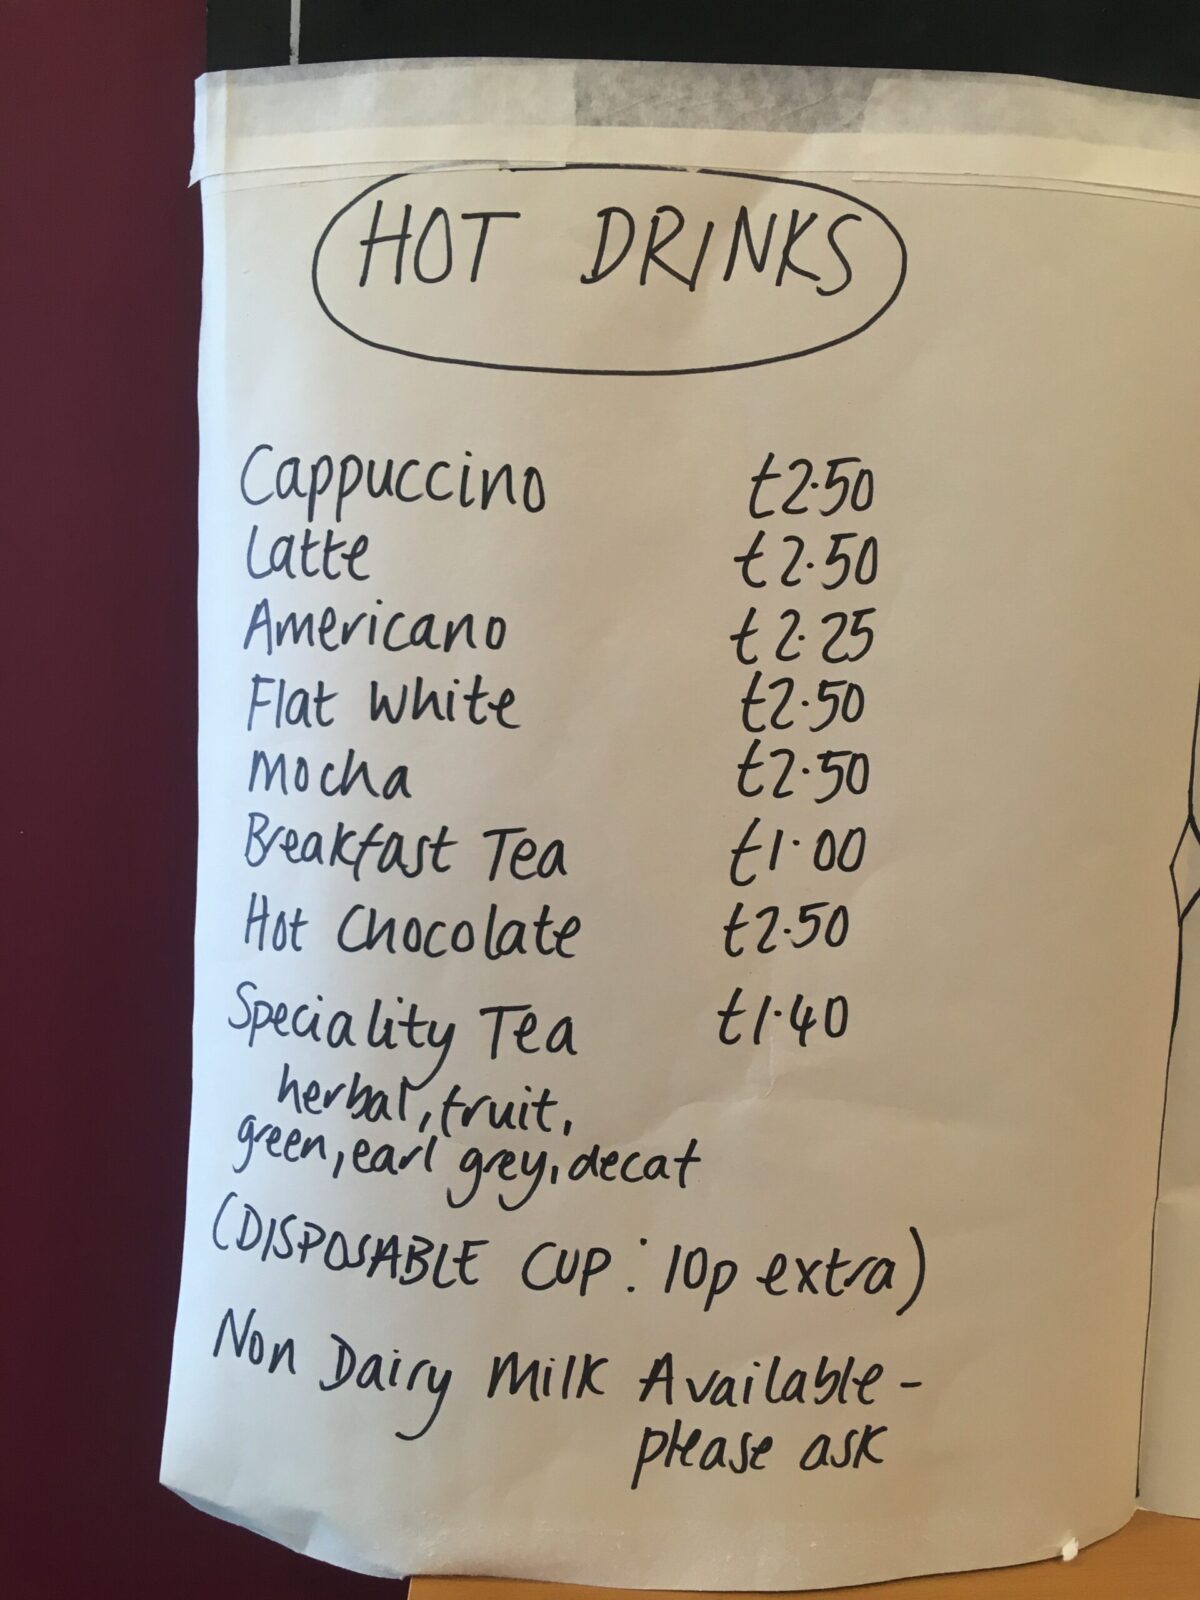 HOT DRINKS
Cappuccino £2.50
Latte £2.50
Americano £2.25
Flat White £2.50
Mocha £2.50
Breakfast Tea £1.00
Hot Chocolate £2.50
Speciality Tea £1.40
herbal, fruit,
green, earl grey, decaf
(DISPOSABLE CUP: 10p extra)
Non Dairy Milk Available -
please ask